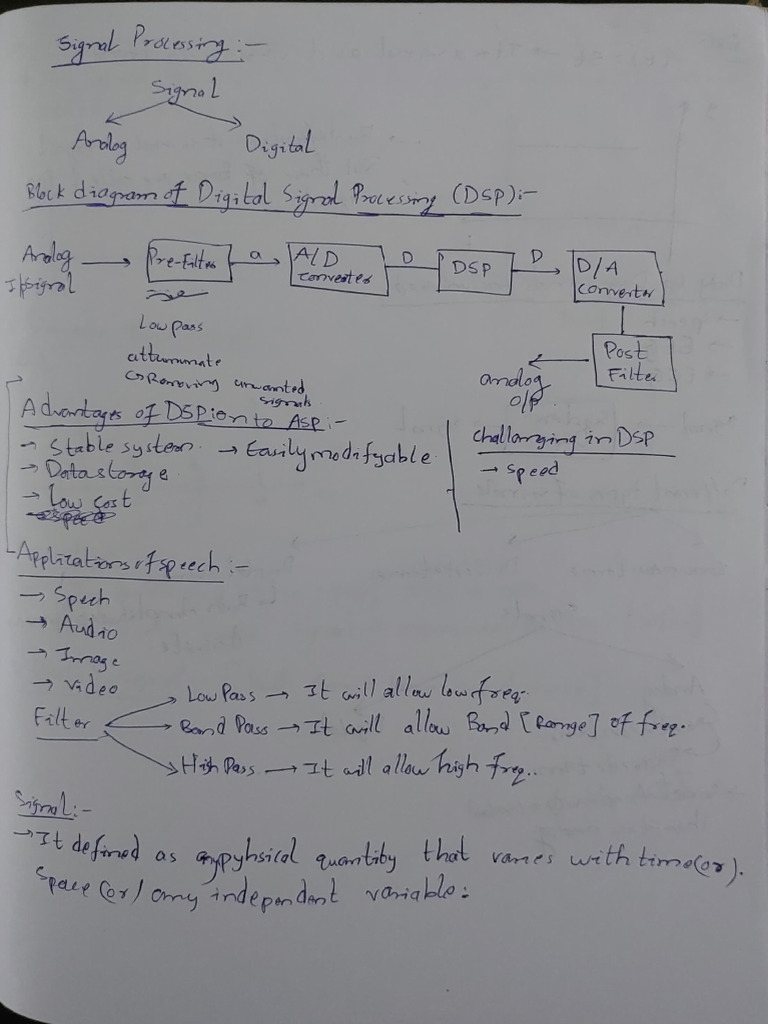 Signal Processing :-
Signal
Analog Digital
Block diagram of Digital Signal Processing (DSP):-
Analog I/p signal → Pre-Filter a A/D converter D DSP D D/A converter
Low pass
Post Filter
attumunate
analog o/p
↳ Removing unwanted signals
Advantages of DSP ion to ASP :-
→ Stable system. → Easily modifyable.
→ Data storage
→ Low cost
Challanging in DSP
→ speed
Applications of speech :-
→ Spech
→ Audio
→ Image
→ video
Filter
Low Pass → It will allow low freq.
Band Pass → It will allow Band [Range] of freq.
High Pass → It will allow high freq..
Signal :-
→ It defined as any pyhsical quantity that varies with time (or).
Space (or) any independent variable.